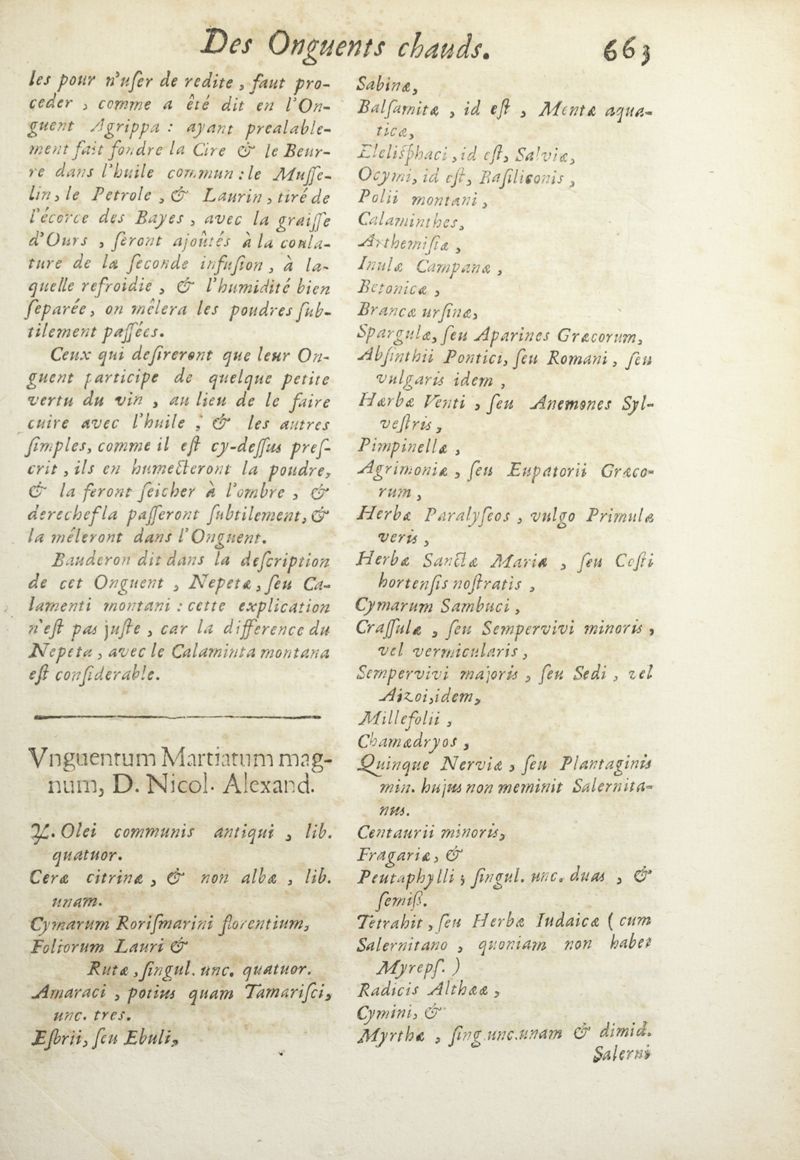 Des Onguents chauds. 663
les pour n'uſer de redite, faut pro-
ceder, comme a êté dit en l'On-
guent Agrippa : ayant prealable-
ment fait fondre la Cire & le Beur-
re dans l'huile commun : le Muſſe-
lin, le Petrole, & Laurin, tiré de
l'écorce des Bayes, avec la graiſſe
d'Ours, ſeront ajoûtés à la coula-
ture de la ſeconde infuſion, à la-
quelle refroidie, & l'humidité bien
ſeparée, on mêlera les poudres ſub-
tilement paſſées.
Ceux qui deſireront que leur On-
guent participe de quelque petite
vertu du vin, au lieu de le faire
cuire avec l'huile ; & les autres
ſimples, comme il eſt cy-deſſus preſ-
crit, ils en humecteront la poudre,
& la feront ſeicher à l'ombre, &
derechef la paſſeront ſubtilement, &
la mêleront dans l'Onguent.
Bauderon dit dans la deſcription
de cet Onguent, Nepetæ, ſeu Ca-
lamenti montani : cette explication
n'eſt pas juſte, car la difference du
Nepeta, avec le Calaminta montana
eſt conſiderable.
Vnguentum Martiatum mag-
num, D. Nicol. Alexand.
℞. Olei communis antiqui, lib.
quatuor.
Ceræ citrinæ, & non albæ, lib.
unam.
Cymarum Roriſmarini florentium,
Foliorum Lauri &
Rutæ, ſingul. unc. quatuor.
Amaraci, potius quam Tamariſci,
unc. tres.
Eſbrii, ſeu Ebuli,
Sabinæ,
Balſamitæ, id eſt, Mentæ aqua-
ticæ,
Eleliſphaci, id eſt, Salviæ,
Ocymi, id eſt, Baſiliconis,
Polii montani,
Calaminthes,
Arthemiſiæ,
Inulæ Campanæ,
Betonicæ,
Brancæ urſinæ,
Spargulæ, ſeu Aparines Græcorum,
Abſinthii Pontici, ſeu Romani, ſeu
vulgaris idem,
Hærbæ Venti, ſeu Anemones Syl-
veſtris,
Pimpinellæ,
Agrimoniæ, ſeu Eupatorii Græco-
rum,
Herbæ Paralyſeos, vulgo Primulæ
veris,
Herbæ Sanctæ Mariæ, ſeu Coſti
hortenſis noſtratis,
Cymarum Sambuci,
Craſſulæ, ſeu Sempervivi minoris,
vel vermicularis,
Sempervivi majoris, ſeu Sedi, vel
Aizoi, idem,
Millefolii,
Chamædryos,
Quinque Nerviæ, ſeu Plantaginis
min. hujus non meminit Salernita-
nus.
Centaurii minoris,
Fragariæ, &
Peutaphylli ; ſingul. unc. duas, &
ſemiß.
Tetrahit, ſeu Herbæ Iudaicæ ( cum
Salernitano, quoniam non habet
Myrepſ. )
Radicis Althææ,
Cymini, &
Myrthæ, ſing. unc. unam & dimid.
Salerni